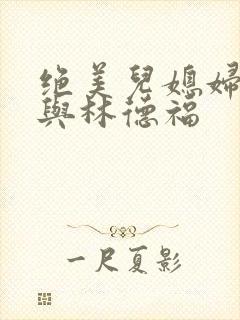 绝美兒媳婦
與林德福
一尺夏影